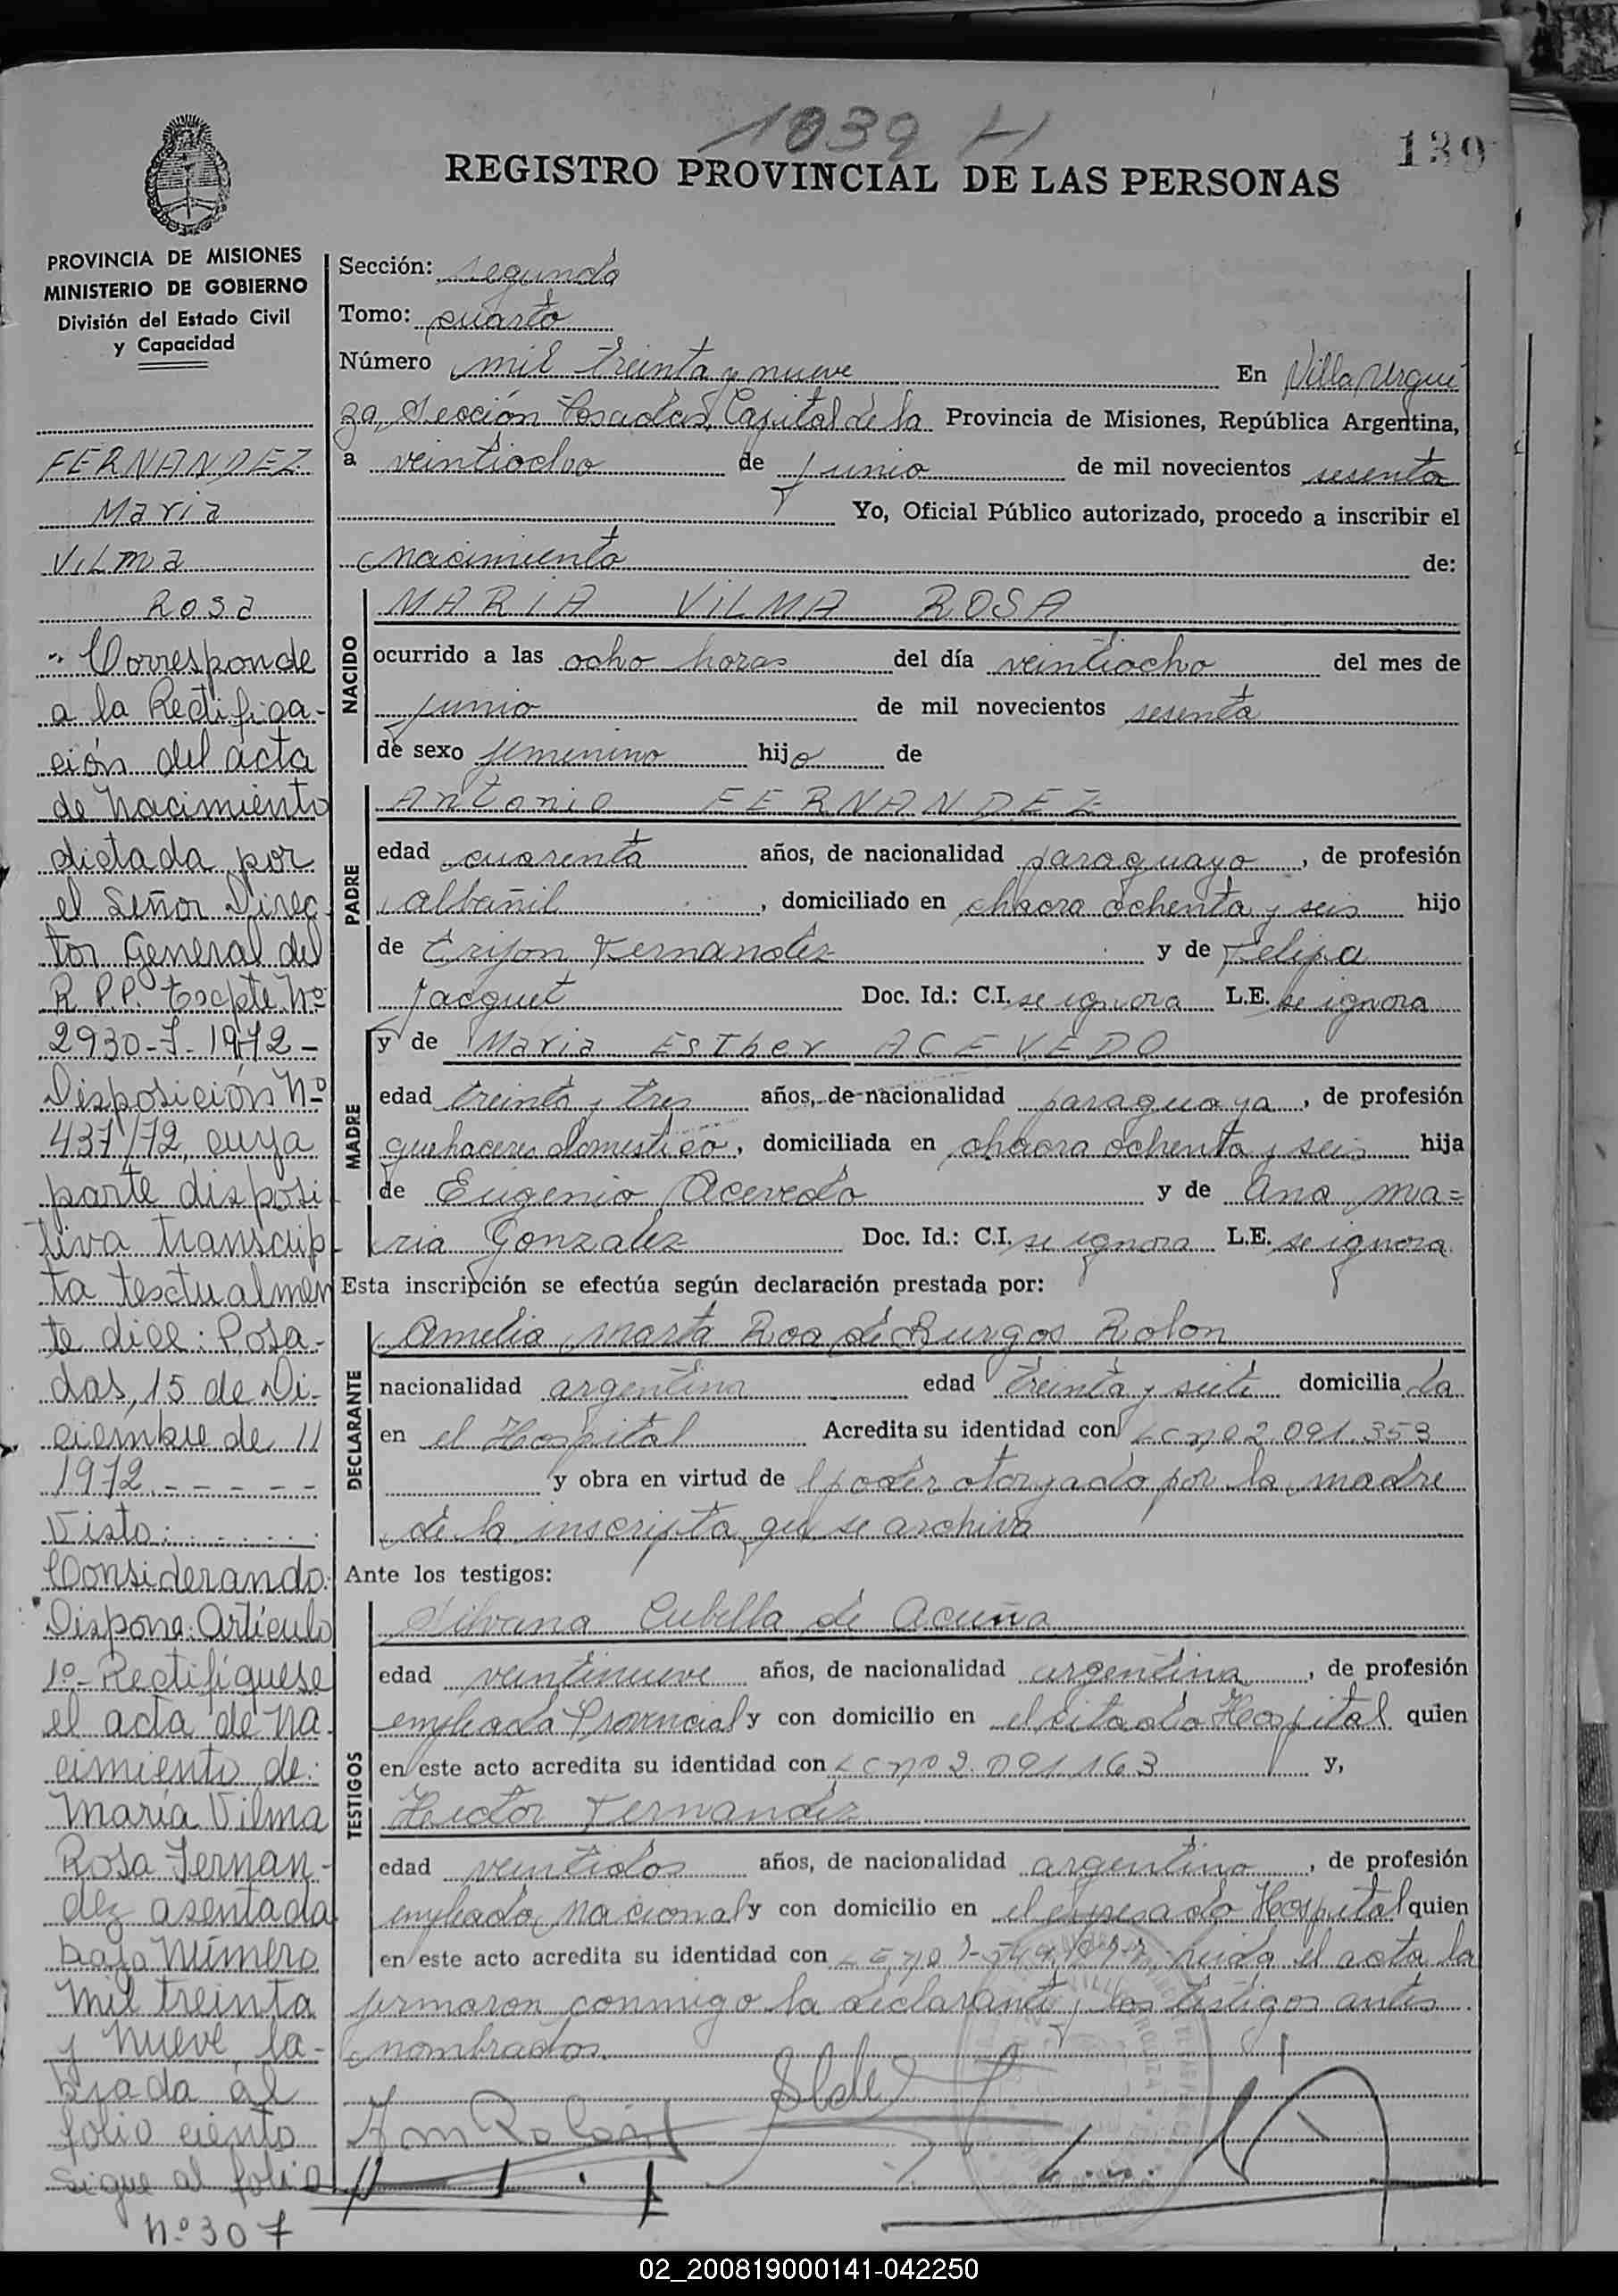 1039 H
139
REGISTRO PROVINCIAL DE LAS PERSONAS
PROVINCIA DE MISIONES
MINISTERIO DE GOBIERNO
División del Estado Civil
y Capacidad
FERNANDEZ
Maria
Vilma
Rosa
Corresponde
a la Rectifica-
ción del acta
de nacimiento
dictada por
el Señor Direc
tor General del
R.P.P. Escpte Nº
2930-J-1972-
Disposición Nº
437/72, cuya
parte disposi
tiva transcrip
ta testualmen
te dice: Posa-
das, 15 de Di-
ciembre de //
1972.-----
Visto:
Considerando:
Dispone: Artículo
1º- Rectifíquese
el acta de na-
cimiento de:
María Vilma
Rosa Fernan-
dez asentada
bajo Número
Mil treinta
y nueve la-
brada al
folio ciento
Sigue al folio
Nº 307
Sección: segunda
Tomo: cuarto
Número mil treinta y nueve En Villa Urqui
za, Sección Posadas, Capital de la Provincia de Misiones, República Argentina,
a veintiocho de junio de mil novecientos sesenta
Yo, Oficial Público autorizado, procedo a inscribir el
nacimiento de:
NACIDO
MARIA VILMA ROSA
ocurrido a las ocho horas del día veintiocho del mes de
junio de mil novecientos sesenta
de sexo femenino hijo de
PADRE
Antonio FERNANDEZ
edad cuarenta años, de nacionalidad paraguayo, de profesión
albañil, domiciliado en chacra ochenta y seis hijo
de Fernandez y de Felipa
Jacquet Doc. Id.: C.I. se ignora L.E. se ignora
MADRE
y de Maria Esther ACEVEDO
edad treinta y tres años, de nacionalidad paraguaya, de profesión
quehaceres domestico, domiciliada en chacra ochenta y seis hija
de Eugenio Acevedo y de Ana Ma=
ria Gonzalez Doc. Id.: C.I. se ignora L.E. se ignora
Esta inscripción se efectúa según declaración prestada por:
DECLARANTE
Amelia Marta Roa de Burgos Rolon
nacionalidad argentina edad treinta y siete domicilia da
en el Hospital Acredita su identidad con LC nº 2.091.353
y obra en virtud de poder otorgado por la madre
de la inscripta que se archiva
Ante los testigos:
TESTIGOS
Silvana Cubilla de Acuña
edad veintinueve años, de nacionalidad argentina, de profesión
empleada Provincial y con domicilio en el citado Hospital quien
en este acto acredita su identidad con LC nº 2.091.163 y,
Hector Fernandez
edad veintidos años, de nacionalidad argentino, de profesión
empleado Nacional y con domicilio en el expresado Hospital quien
en este acto acredita su identidad con LE nº leida el acta la
firmaron conmigo la declarante y los testigos antes
nombrados.
02_200819000141-042250